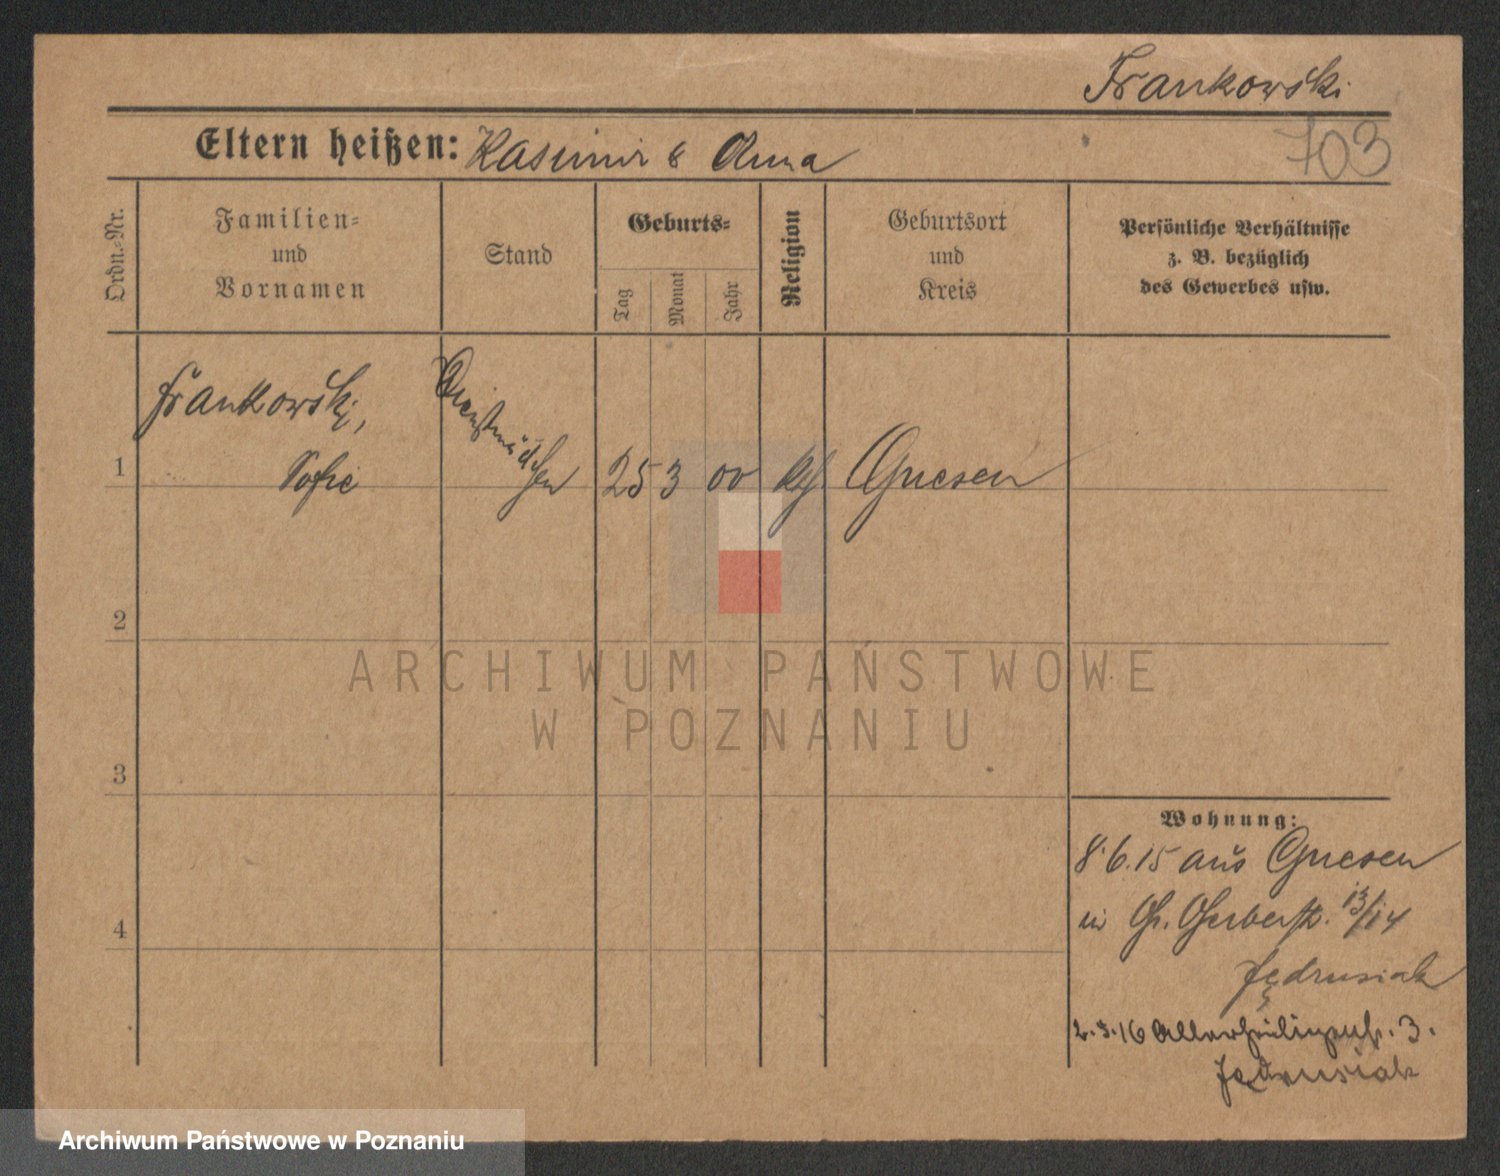 Frankowski
703
Eltern heißen: Kasimir & Anna
Ordn.=Nr.
Familien=
und
Vornamen
Stand
Geburts=
Tag
Monat
Jahr
Religion
Geburtsort
und
Kreis
Persönliche Verhältnisse
z. B. bezüglich
des Gewerbes usw.
1
Frankowski,
Sofie
Dienstmädchen
25 3 00 kth Gnesen
2
3
4
Wohnung:
8.6.15 aus Gnesen
in Gr. Gerberstr. 13/14
Jędrusiak
2.3.16 Allerheiligenstr. 3.
Jędrusiak
ARCHIWUM PAŃSTWOWE
W POZNANIU
Archiwum Państwowe w Poznaniu